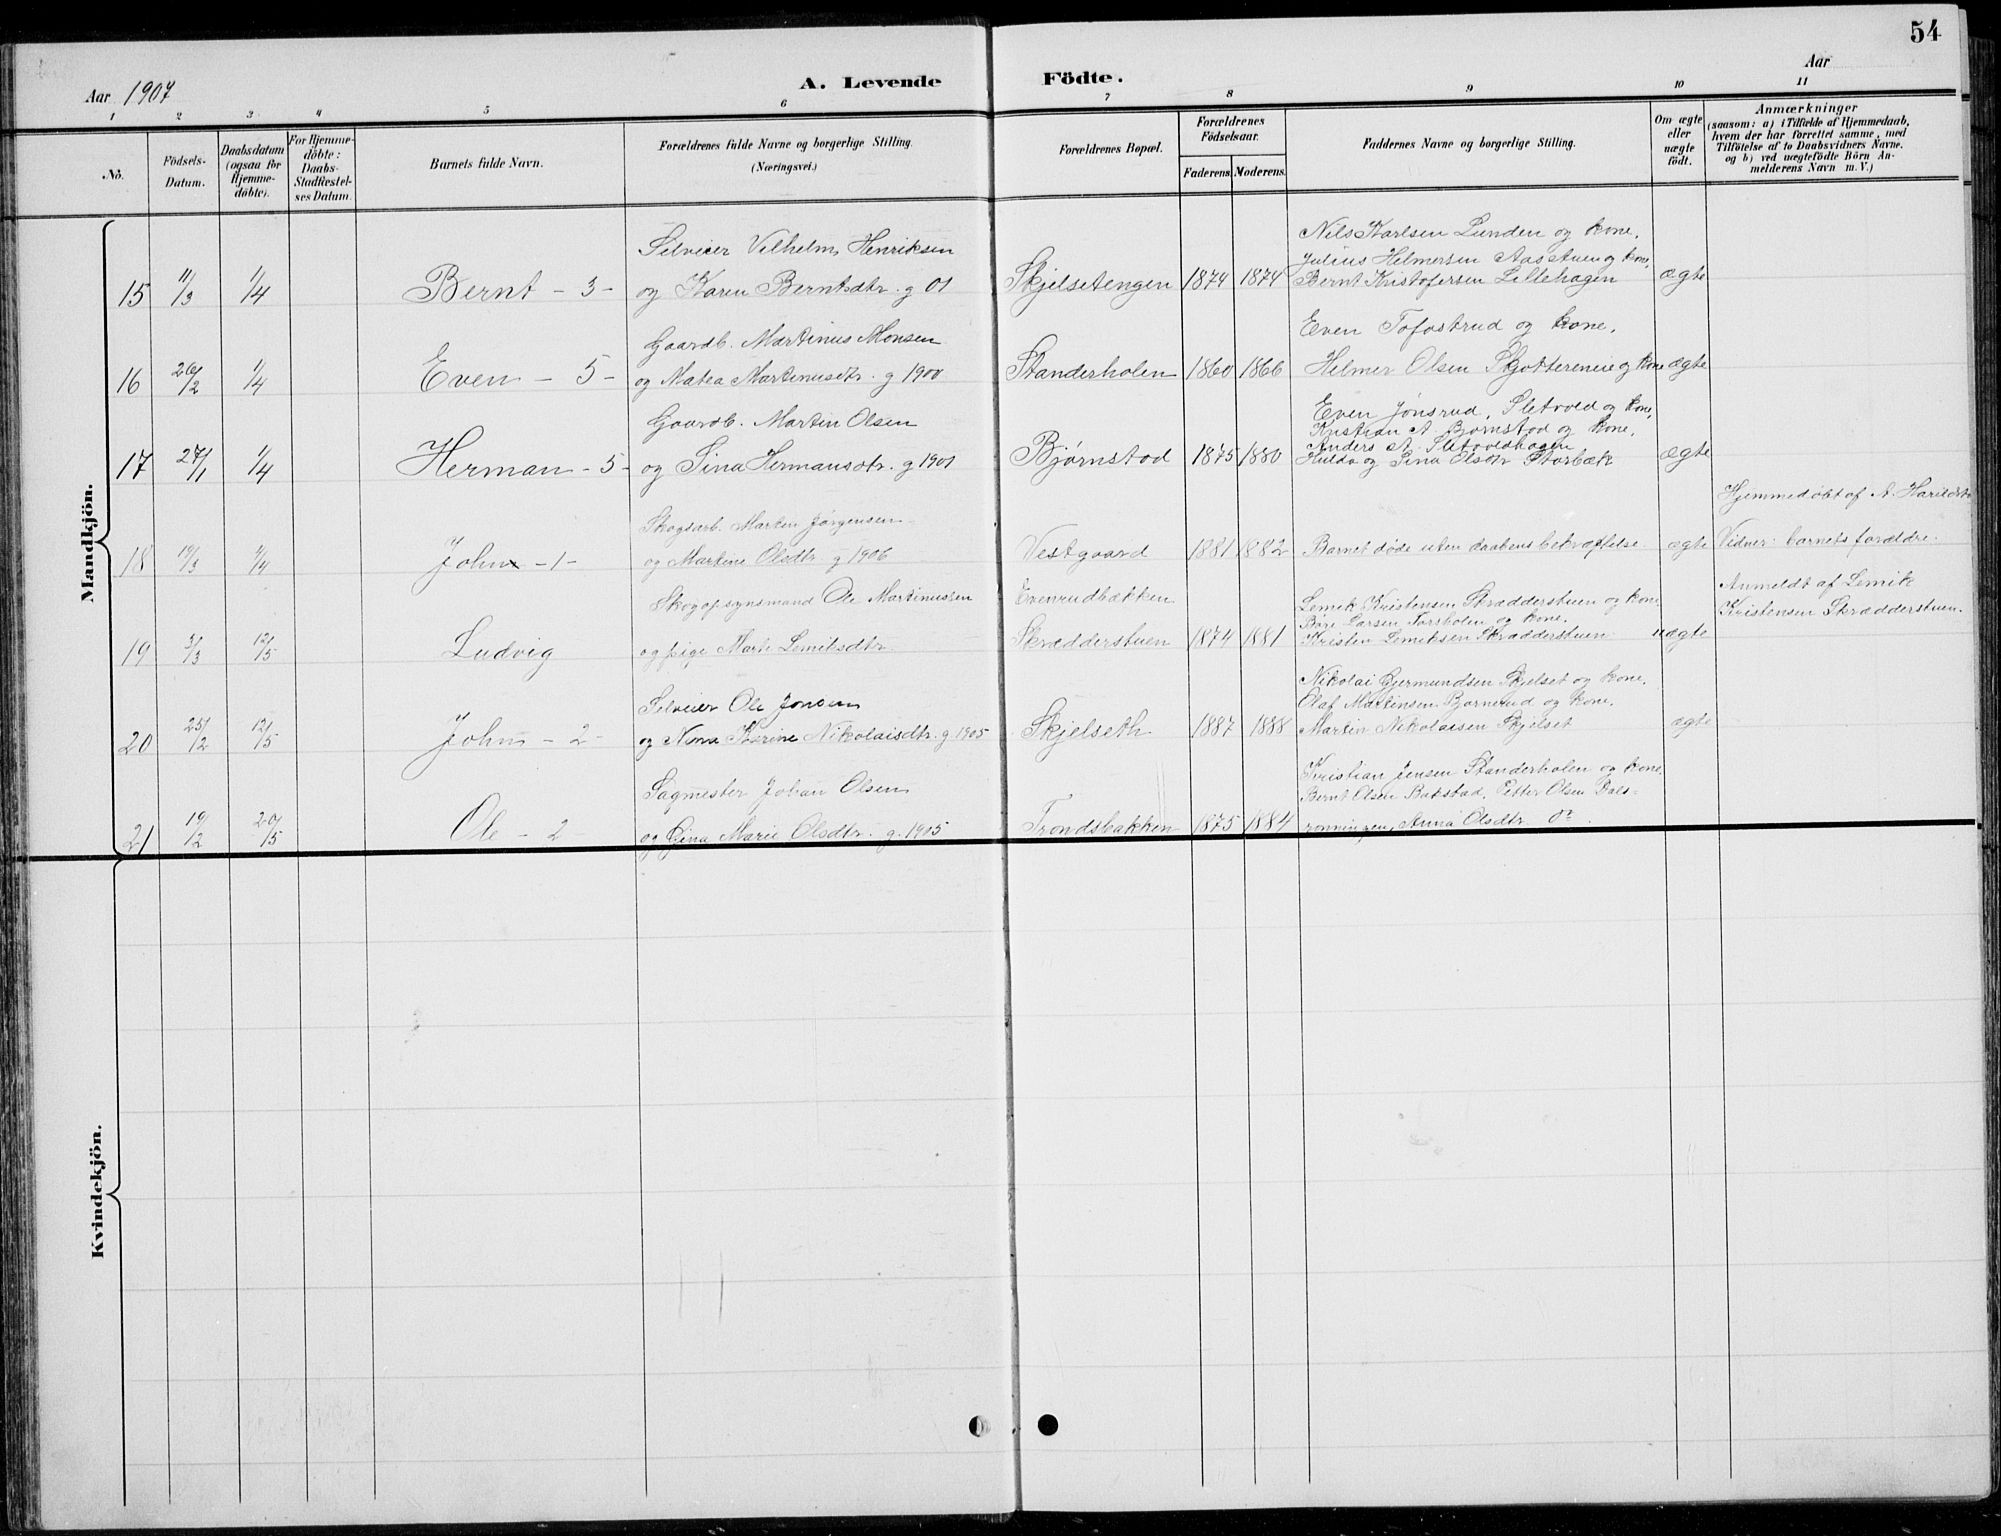 54
Aar 1907
A. Levende Födte.
Aar
1 2 3 4 5 6 7 8 9 10 11
No.
Födsels-Datum.
Daabsdatum (ogsaa for Hjemme-döbte).
For Hjemme-döbte: Daabs-Stadfæstel-ses Datum.
Barnets fulde Navn.
Forældrenes fulde Navne og borgerlige Stilling.
(Næringsvei.)
Forældrenes Bopæl.
Forældrenes Födselsaar.
Faderens. Moderens.
Faddernes Navne og borgerlige Stilling.
Om ægte eller uægte födt.
Anmærkninger
(saasom: a) i Tilfælde af Hjemmedaab, hvem der har forrettet samme, med Tilföielse af to Daabsvidners Navne. og b) ved uægtefödte Börn An-melderens Navn m. V.)
Mandkjön.
Selveier Vilhelm Henriksen
Nils Karlsen Lunden og kone,
Julius Helmersen Aasstuen og kone,
15 11/3 1/4 Bernt - 3 - og Karen Berntsdtr. g 01 Skjelsetengen 1874 1874 Bernt Kristofersen Lillehagen ægte
Gaardb. Martinus Monsen
Even Tofastrud og kone,
16 26/2 1/4 Even - 5 - og Matea Martinusdtr. g 1900 Standerholen 1860 1866 Helmer Olsen Skjottereneie og kone ægte
Gaardb. Martin Olsen
Even Jönsrud, Sletvold og kone,
Kristian A. Bjørnstad og kone,
Anders A. Sletvoldhagen
17 27/1 1/4 Herman - 5 - og Sina Hermansdtr. g 1901 Bjørnstad 1875 1880 Hulda og Sina Olsdtr Storbæk ægte
Skogsarb. Martin Jørgensen
Hjemmedøbt af A. Harildstad
18 19/3 1/4 John - 1 - og Martine Olsdtr g 1906 Vestgaard 1881 1882 Barnet døde uten daabens bekræftelse ægte Vidner: barnets forældre.
Skogopsynsmand Ole Martinussen Evenrudbakken
Lemik Kristensen Skrædderstuen og kone,
Anmeldt af Lemik
Bare Larsen Torsholen og kone,
Kristensen Skrædderstuen.
19 3/3 12/5 Ludvig og pige Marte Lemiksdtr Skrædderstuen 1874 1881 Kristen Lemiksen Skrædderstuen uægte
Selveier Ole Jonsen
Nikolai Gjermundsen Skjelset og kone,
Olaf Martinsen Bjørnerud og kone,
20 25/2 12/5 John - 2 - og Nina Karine Nikolaisdtr. g 1905 Skjelseth 1887 1888 Martin Nikolaisen Skjelset ægte
Sagmester Johan Olsen
Kristian Jensen Standerholen og kone,
Bernt Olsen Bakstad, Petter Olsen Dals-
21 19/2 20/5 Ole - 2 og Gina Marie Olsdtr. g. 1905 Trondsbakken 1875 1884 rønningen, Anna Olsdtr. do.
Kvindekjön.